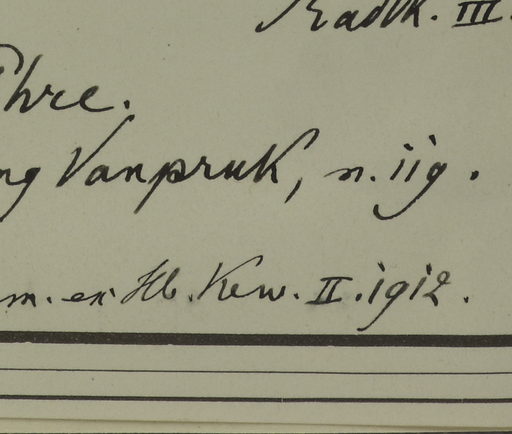 Radlk. III.
Phre.
ng Vanpruk, n. 119.
m. ex Hb. Kew. II. 1912.